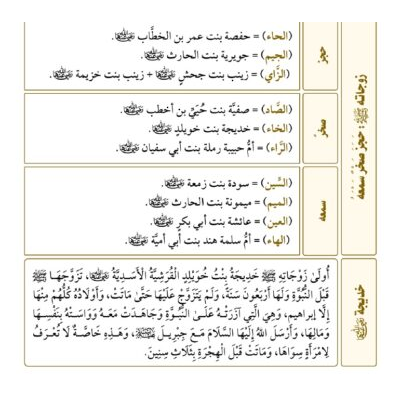 زَوْجَاتُه ﷺ: حجز صخر سمعه
حجز
(الحاء) = حفصة بنت عمر بن الخطَّاب رضي الله عنها.
(الجيم) = جويرية بنت الحارث رضي الله عنها.
(الزَّاي) = زينب بنت جحشٍ رضي الله عنها + زينب بنت خزيمة رضي الله عنها.
صخر
(الصَّاد) = صفيَّة بنت حُيَيِّ بن أخطب رضي الله عنها.
(الخاء) = خديجة بنت خويلدٍ رضي الله عنها.
(الرَّاء) = أمُّ حبيبة رملة بنت أبي سفيان رضي الله عنها.
سمعه
(السِّين) = سودة بنت زمعة رضي الله عنها.
(الميم) = ميمونة بنت الحارث رضي الله عنها.
(العين) = عائشة بنت أبي بكرٍ رضي الله عنها.
(الهاء) = أمُّ سلمة هند بنت أبي أميَّة رضي الله عنها.
خديجة رضي الله عنها
أُولَىٰ زَوْجَاتِهِ ﷺ خَدِيجَةُ بِنْتُ خُوَيْلِدٍ القُرَشِيَّةُ الأَسَدِيَّةُ رضي الله عنها، تَزَوَّجَهَا ﷺ
قَبْلَ النُّبُوَّةِ وَلَهَا أَرْبَعُونَ سَنَةً، وَلَمْ يَتَزَوَّجْ عَلَيْهَا حَتَّىٰ مَاتَتْ، وَأَوْلَادُهُ كُلُّهُمْ مِنْهَا
إِلَّا إبراهيم، وَهِيَ الَّتِي آزَرَتْهُ عَلَىٰ النُّبُوَّةِ وَجَاهَدَتْ مَعَهُ وَوَاسَتْهُ بِنَفْسِهَا
وَمَالِهَا، وَأَرْسَلَ اللهُ إِلَيْهَا السَّلَامَ مَعَ جِبْرِيلَ، وَهَذِهِ خَاصَّةٌ لَا تُعْرَفُ
لِامْرَأَةٍ سِوَاهَا، وَمَاتَتْ قَبْلَ الهِجْرَةِ بِثَلَاثِ سِنِينَ.